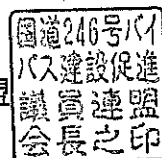 國道246号バイ
パス建設促進
議員連盟
会長之印